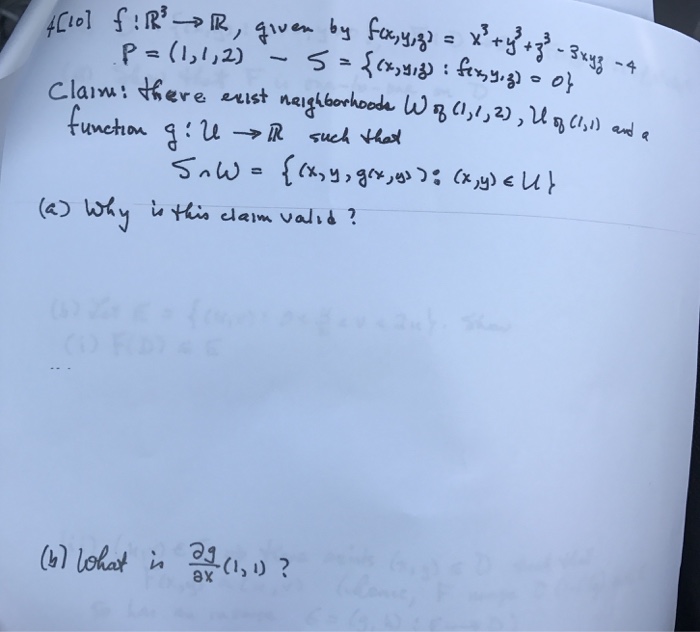 4[10] f : ℝ³ → ℝ, given by f(x,y,z) = x³ + y³ + z³ - 3xyz - 4
P = (1,1,2) - S = {(x,y,z) : f(x,y,z) = 0}
Claim: there exist neighborhoods W of (1,1,2), U of (1,1) and a
function g : U → ℝ such that
S ∩ W = {(x, y, g(x,y)) : (x,y) ∈ U}
(a) Why is this claim valid ?
(b) What is ∂g/∂x (1,1) ?